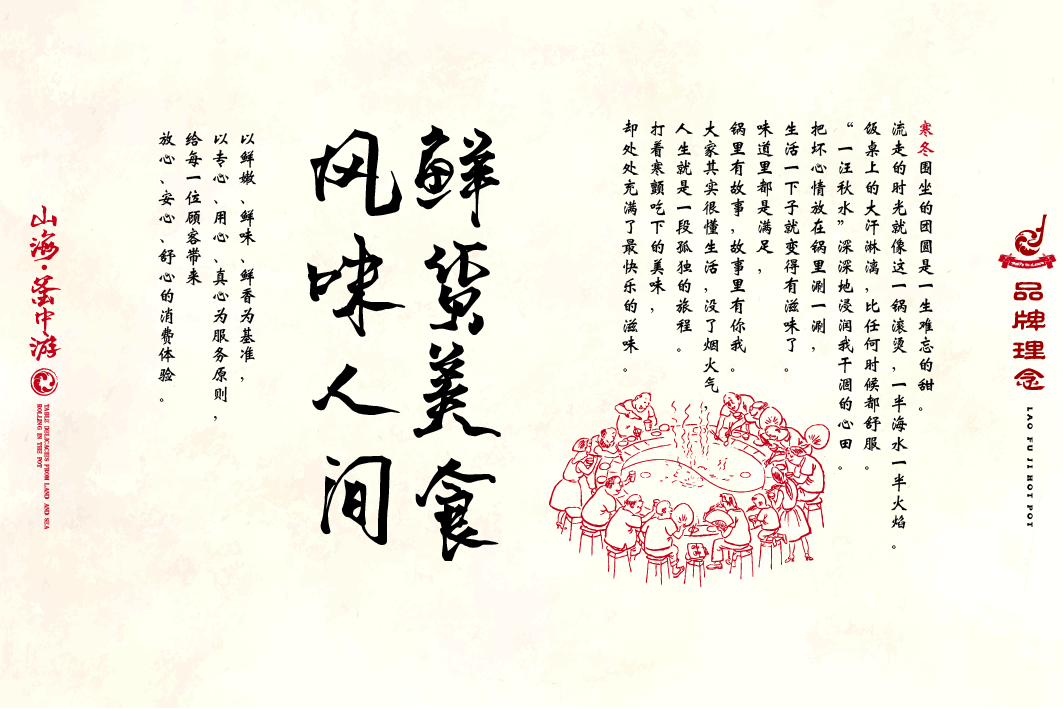 品牌理念
LAO FU JI HOT POT
寒冬围坐的团圆是一生难忘的甜。
流走的时光就像这一锅滚烫，一半海水一半火焰。
饭桌上的大汗淋漓，比任何时候都舒服。
“一汪秋水”深深地浸润我干涸的心田。
把坏心情放在锅里涮一涮，
生活一下子就变得有滋味了。
味道里都是满足，
锅里有故事，故事里有你我。
大家其实很懂生活，没了烟火气，
人生就是一段孤独的旅程。
打着寒颤吃下的美味，
却处处充满了最快乐的滋味。
鲜货美食
风味人间
以鲜嫩、鲜味、鲜香为基准，
以专心、用心、真心为服务原则，
给每一位顾客带来
放心、安心、舒心的消费体验。
山海·釜中游
TABLE DELICACIES FROM LAND AND SEA
ROLLING IN THE POT